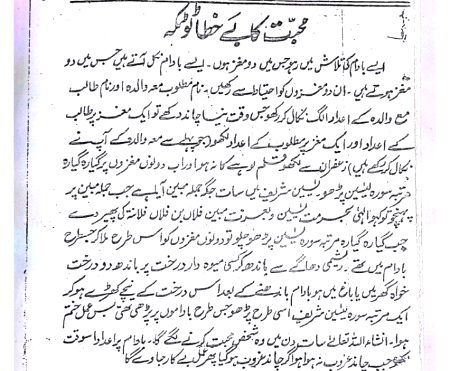 محبت کا بے خطا ٹوٹکہ
ایسے بادام کی تلاش میں رہو جس میں دو مغز ہوں۔ ایسے بادام مل آتے ہیں جس میں دو
مغز ہوتے ہیں۔ ان دو مغزوں کو احتیاط سے رکھیں۔ نام مطلوب معہ والدہ اور نام طالب
مع والدہ کے اعداد الگ نکال کر رکھو جس وقت نیا چاند دکھے تو ایک مغز پر طالب
کے اعداد اور ایک مغز پر مطلوب کے اعداد لکھو (جو پہلے سے معہ والدہ کے آپ نے
نکال کر رکھے ہیں) زعفران سے لکھو قلم لوہے کا نہ ہو اور اب دونوں مغزوں پر گیارہ گیارہ
مرتبہ سورہ یٰسین پڑھو۔ یٰسین شریف میں سات جگہ جملہ مبین آیا ہے جب جملہ مبین پر
پہنچو تو کہو الٰہی بحرمت یٰسین و بحرمت مبین فلاں بن فلاں فلانہ کی پھیر دے
جب گیارہ گیارہ مرتبہ سورہ یٰسین پڑھ چلو تو دونوں مغزوں کو اس طرح ملا کر جس طرح
بادام میں تھے۔ ریشمی دھاگے سے باندھ کر کسی میوہ دار درخت پر باندھ دو درخت
خواہ گھر میں یا باغ میں ہو بادام باندھنے کے بعد اس درخت کے نیچے کھڑے ہو کر
ایک مرتبہ سورہ یٰسین شریف اسی طرح پڑھو جس طرح باداموں پر پڑھی تھی بس عمل ختم
ہوا۔ انشاء اللہ تعالیٰ سات دن میں وہ شخص محبت کرنے لگے گا۔ بادام پر اعداد اسوقت
لکھو جب چاند غروب نہ ہوا ہو اگر چاند غروب ہو گیا پھر عمل بے کار جاوے گا